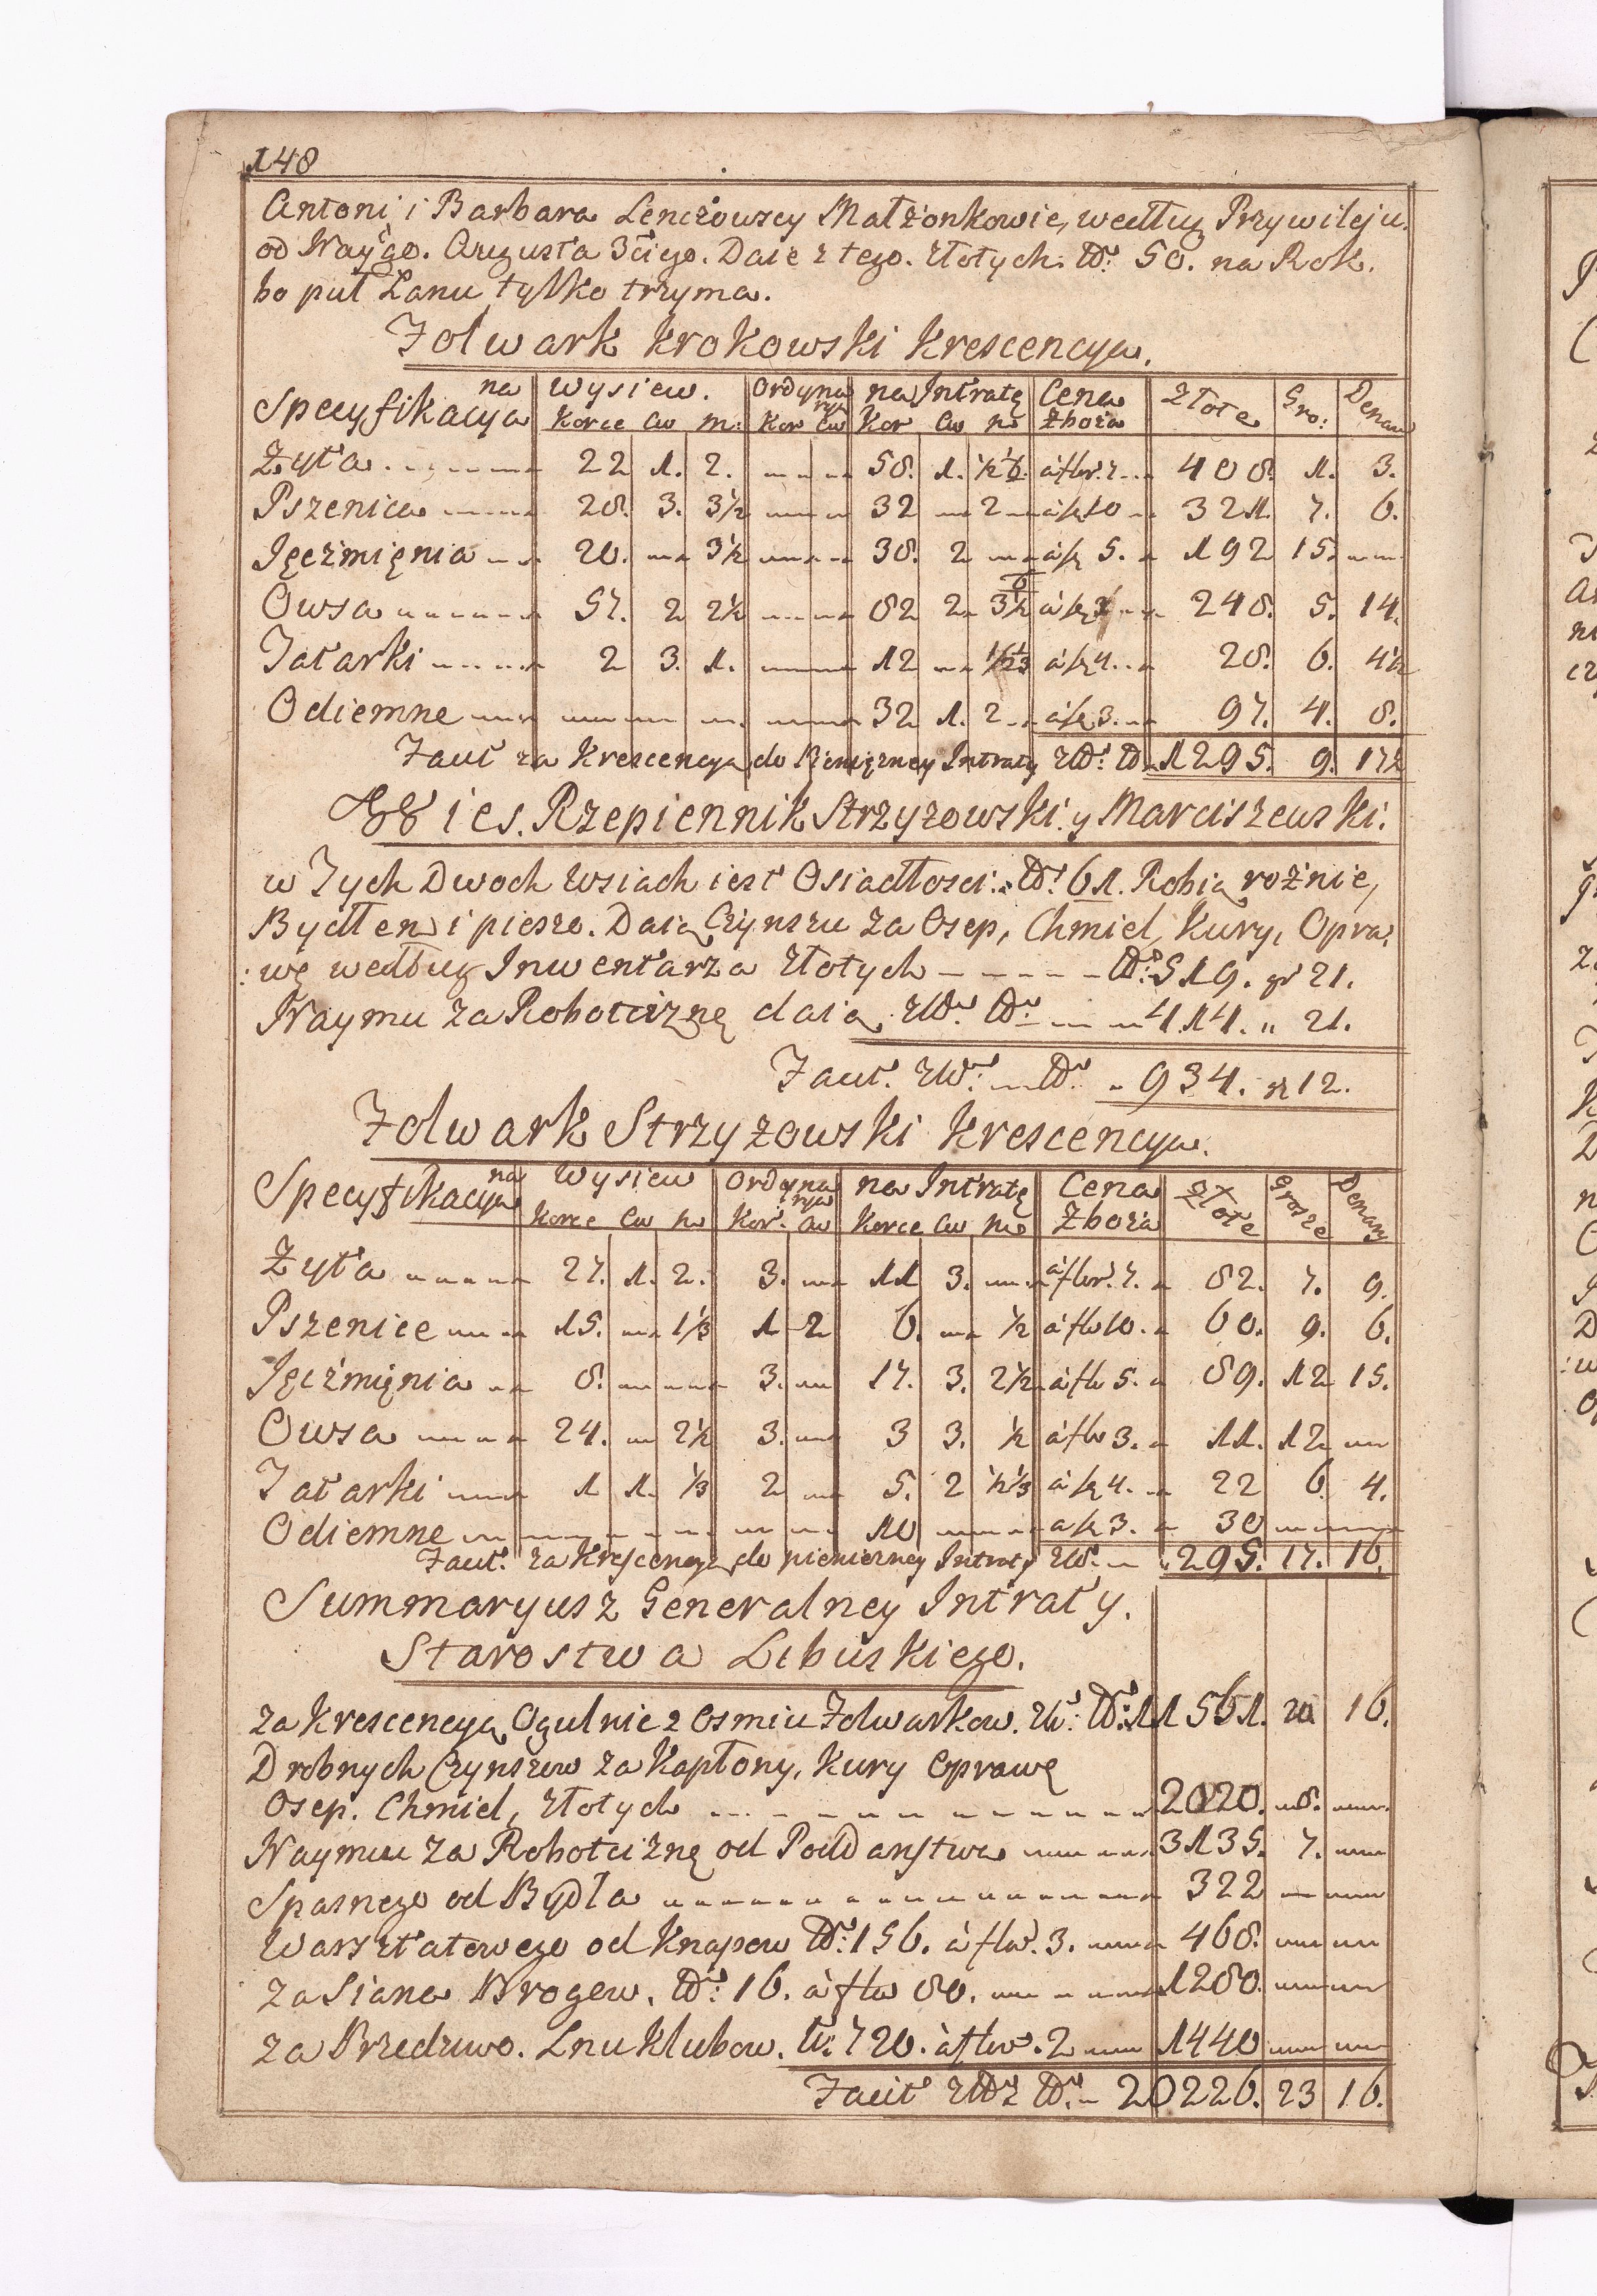 148
Antoni i Barbara Lenczowscy Małżonkowie, według Przywileju
od Nayśgo. Augusta 3ciego. Daie z tego. złotych. Nr: 50. na Rok.
bo puł Łanu tylko trzyma.
Folwark Krokowski Krescencya.
Specyfikacya na | Wysiew. | Ordynarya | na Intratę | Cena Zboża | Złote | Gro: | Denar
Korce Cw m: | Kor Cw | Kor Cw m
Żyta 22 1. 2. 58. 1. à flor. 7 408. 1. 3.
Pszenica 28. 3. 3½ 32 2 à fl 10 321. 7. 6.
Jęczmięnia 20. 3½ 38. 2 à fl 5. 192 15.
Owsa 57. 2 2½ 82 2 3½ à fl 3 248. 5. 14.
Tatarki 2 3. 1. 12 ½ ⅓ à fl 4. 28. 6. 4½
Odiemne 32 1. 2 à fl 3. 97. 4. 8.
Facit za Krescencyą do Pieniężney Intraty 1295. 9. 17½
Wies. Rzepiennik Strzyzowski. y Marciszewski.
w Tych Dwoch Wsiach iest Osiadłosci. Nr: 61. Robią rożnie,
Bydłem i pieszo. Daią Czynszu za Osep, Chmiel, Kury, Opra,
:wę według Inwentarza złotych Nr: 519. gr 21.
Naymu za Robociznę daią 414. " 21.
Facit. 934. gr 12.
Folwark Strzyzowski Krescencya.
Specyfikacya na | Wysiew | Ordynarya | na Intratę | Cena Zboża | Złote | Grosze | Denary
Korce Cw m | Kor. Cw | Korce Cw m
Żyta 27. 1. 2. 3. 11 3. à flor. 7. 82. 7. 9.
Pszenice 15. 1⅓ 1 2 6. ½ à flo 10. 60. 9. 6.
Jęczmięnia 8. 3. 17. 3. 2½ à flo 5. 89. 12 15.
Owsa 24. 2½ 3. 3 3. ½ à flo 3. 11. 12
Tatarki 1 1. ⅓ 2 5. 2 ½ ⅓ à fl 4. 22 6. 4.
Odiemne 10 a fl 3. 30
Facit. za Krescencyą do pienięzney Intraty 295. 17. 16.
Summaryusz Generalney Intraty.
Starostwa Libuskiego.
za Krescencyą Ogulnie z Osmiu Folwarkow. 11561. 20 16.
Drobnych Czynszow za Kapłony, Kury Oprawę
Osep. Chmiel, złotych 2020. 8.
Naymu za Robociznę od Poddanstwa 3135. 7.
Spasnego od Bydła 322
Warsztatowego od Knapow Nr: 156. à flor. 3. 468.
za Siana Brogow. Nr: 16. à flo 80. 1280.
za Przedziwo. Lnu Klubow. Nr: 720. à flor. 2 1440
Facit 20226. 23 16.